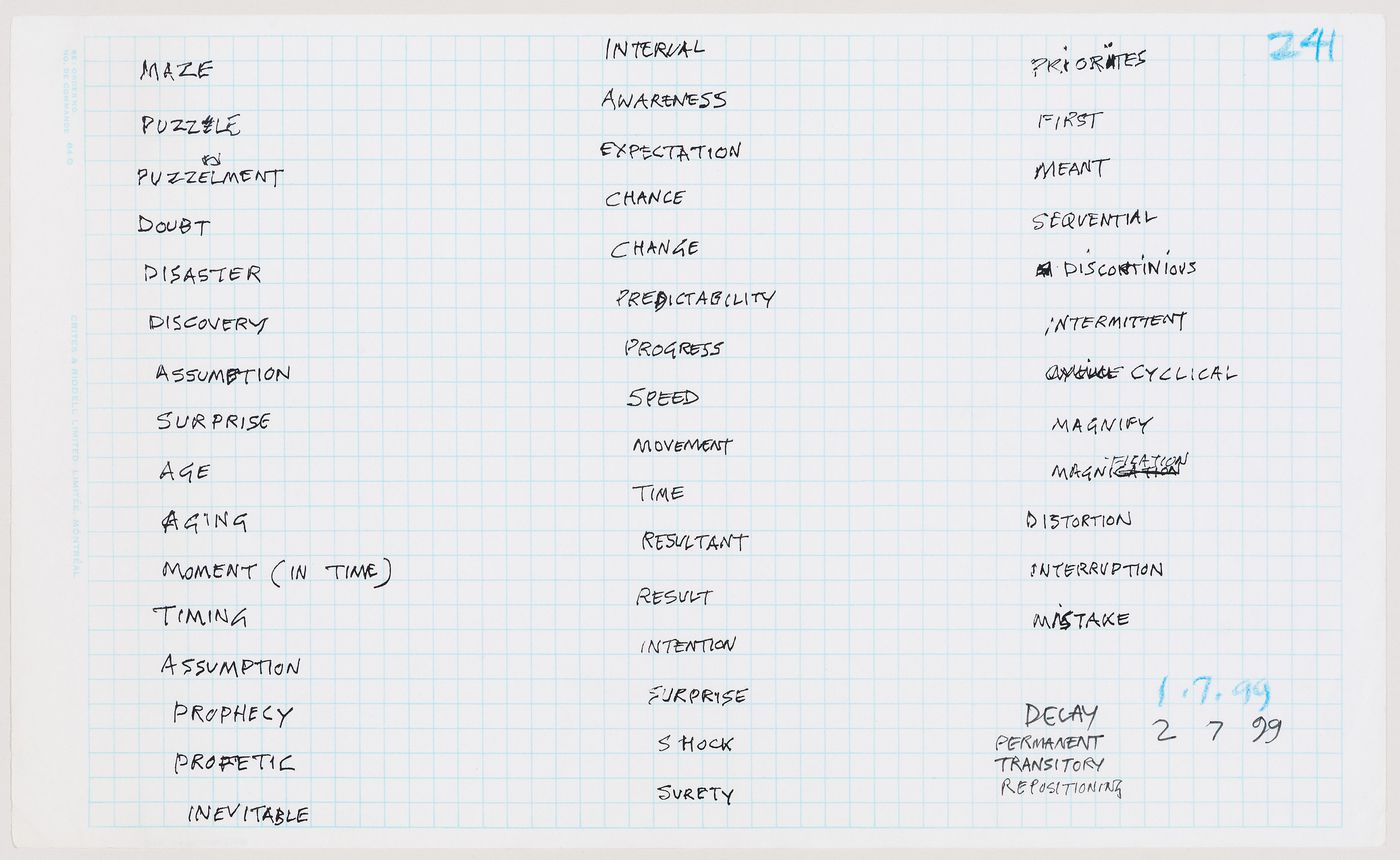 241
MAZE
PUZZLE
PUZZELMENT
DOUBT
DISASTER
DISCOVERY
ASSUMPTION
SURPRISE
AGE
AGING
MOMENT (IN TIME)
TIMING
ASSUMPTION
PROPHECY
PROFETIC
INEVITABLE
INTERVAL
AWARENESS
EXPECTATION
CHANCE
CHANGE
PREDICTABILITY
PROGRESS
SPEED
MOVEMENT
TIME
RESULTANT
RESULT
INTENTION
SURPRISE
SHOCK
SURETY
PRIORITES
FIRST
MEANT
SEQUENTIAL
DISCONTINIOUS
INTERMITTENT
CYCLICAL
MAGNIFY
MAGNIFICATION
DISTORTION
INTERRUPTION
MISTAKE
1.7.99
DECAY 2 7 99
PERMANENT
TRANSITORY
REPOSITIONING
CRITES & RIDDELL LIMITED LIMITÉE, MONTRÉAL